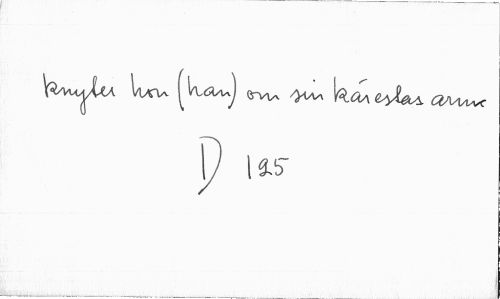 knyter hon (han) om sin kärestas arm
D 125